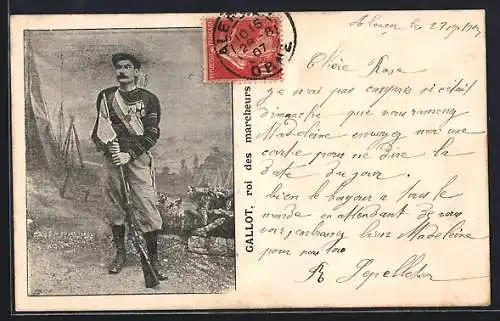 Alençon le 27 sept 1907
ALENÇON
10 15
07
ORNE
GALLOT, roi des marcheurs
Chère Rose
je n'ai pas compris si c'était
dimanche que vous
Madeleine envoyez moi une
carte pour me dire la
date du jour.
bien le bonjour a tous le
monde en attendant de vous
voir, embrassez bien Madeleine
pour nous tous